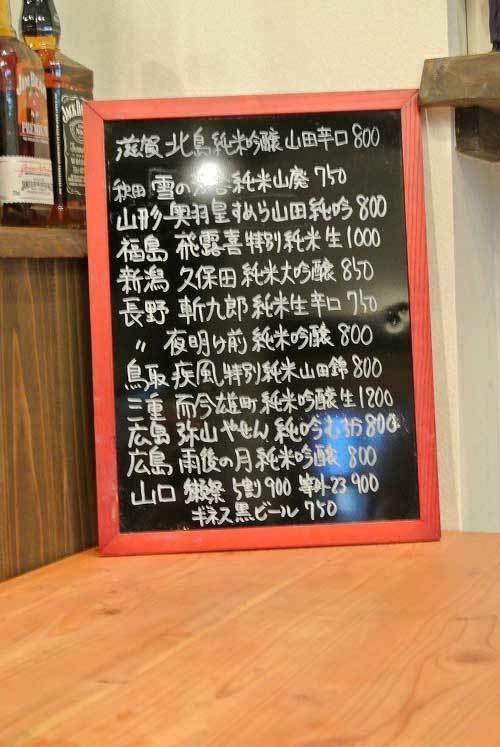 JIM BEAM
PREMIUM
JACK DANIEL'S
滋賀 北島 純米吟醸 山田辛口 800
秋田 雪の 純米山廃 750
山形 奥羽皇すめら山田純吟 800
福島 飛露喜 特別純米生 1000
新潟 久保田 純米大吟醸 850
長野 斬九郎 純米生辛口 750
〃 夜明け前 純米吟醸 800
鳥取 疾風 特別純米山田錦 800
三重 而今雄町 純米吟醸生 1200
広島 弥山 やせん 純吟むろか 800
広島 雨後の月 純米吟醸 800
山口 獺祭 5割 900 等外23 900
ギネス黒ビール 750